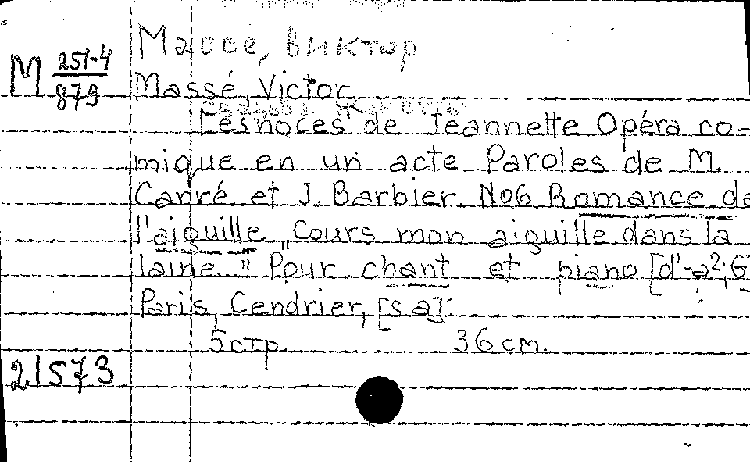 Массе, Виктор
M 251-4
879
Massé, Victor
Les noces de Jeannette Opéra co-
mique en un acte Paroles de M.
Carré et J. Barbier. No6 Romance de
l'aiguille „Cours mon aiguille dans la
laine." Pour chant et piano [d'-a²; G
Paris, Cendrier, [s a].
5 стр. 36 см.
21573